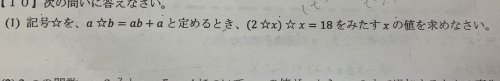 【１０】次の問いに答えなさい。
(1) 記号☆を、a☆b = ab + a と定めるとき、(2☆x)☆x = 18 をみたす x の値を求めなさい。